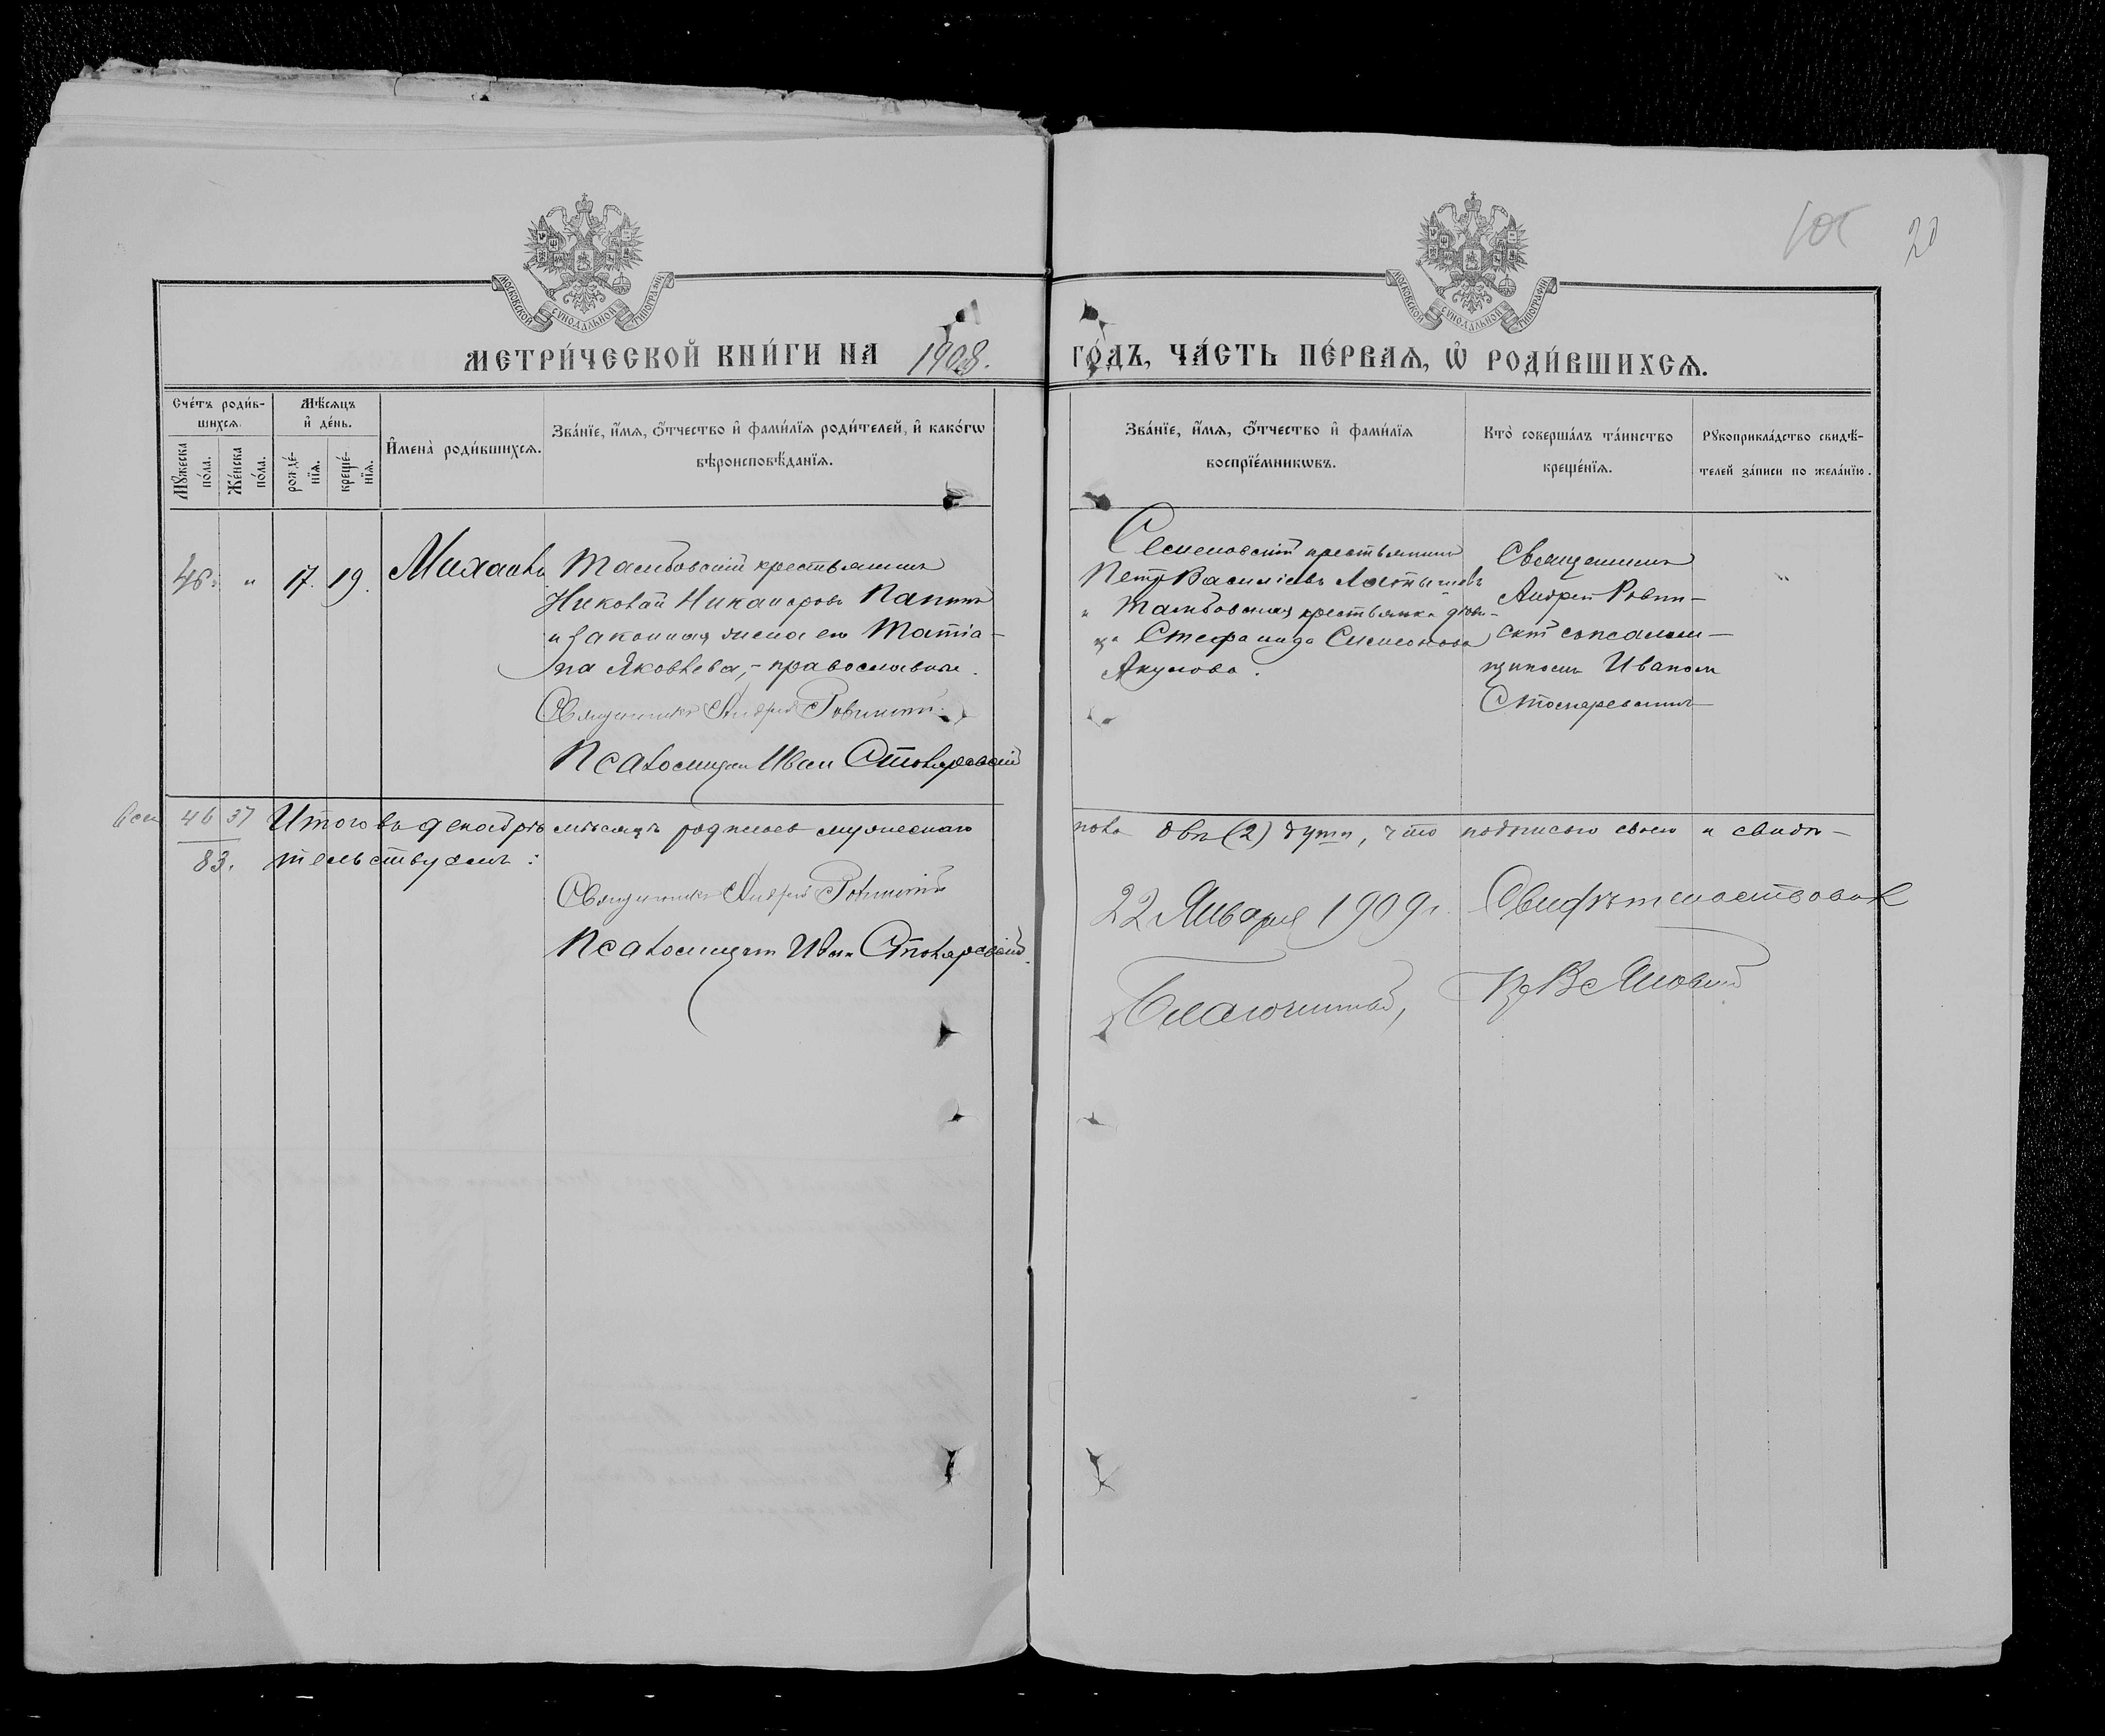 105 20
МОСКОВСКОЙ СѴНОДАЛЬНОЙ ТИПОГРАФІИ
МОСКОВСКОЙ СѴНОДАЛЬНОЙ ТИПОГРАФІИ
МЕТРИ́ЧЕСКОЙ КНИ́ГИ НА 1908. ГО́ДЪ, ЧА́СТЬ ПЕ́РВАѦ, Ѡ҆ РОДИ́ВШИХСѦ.
Сче́тъ роди́в-
шихсѧ.
Мѣ́сѧцъ
и҆ де́нь.
Мꙋ́жеска
по́ла.
Же́нска
по́ла.
рожде́-
нїѧ.
креще́-
нїѧ.
И҆мена̀ роди́вшихсѧ.
Зва́нїе, и҆́мѧ, ѻ҆́тчество и҆ фами́лїѧ роди́телей, и҆ како́гѡ
вѣроисповѣ́данїѧ.
Зва́нїе, и҆́мѧ, ѻ҆́тчество и҆ фами́лїѧ
воспрїе́мникѡвъ.
Кто̀ соверша́лъ та́инство
креще́нїѧ.
Рꙋкоприкла́дство свидѣ́-
телей за́писи по жела́нїю.
46. " 17. 19. Михаилъ
Тамбовскій крестьянинъ
Николай Никаноровъ Папинъ
и законная жена его Татіа-
на Яковлева, - православные.
Священникъ Андрей
Псаломщик Иван Столяревскій
Семеновскій крестьянинъ
Петр Василіевъ
и Тамбовская крестьянка дѣви-
ца Стефанида Симеонова
Акулова.
Священникъ
Андрей Ровин-
скій съ псалом-
щикомъ Иваном
Столяревскимъ
Всего 46 37 Итого въ декабрѣ мѣсяцѣ родилось мужескаго пола два (2) души, что подписью своею и свидѣ-
83. тельствуемъ:
Священникъ Андрей
Псаломщикъ Иван Столяревскій.
22 Января 1909 г. Свидѣтельствовалъ
Благочинный,